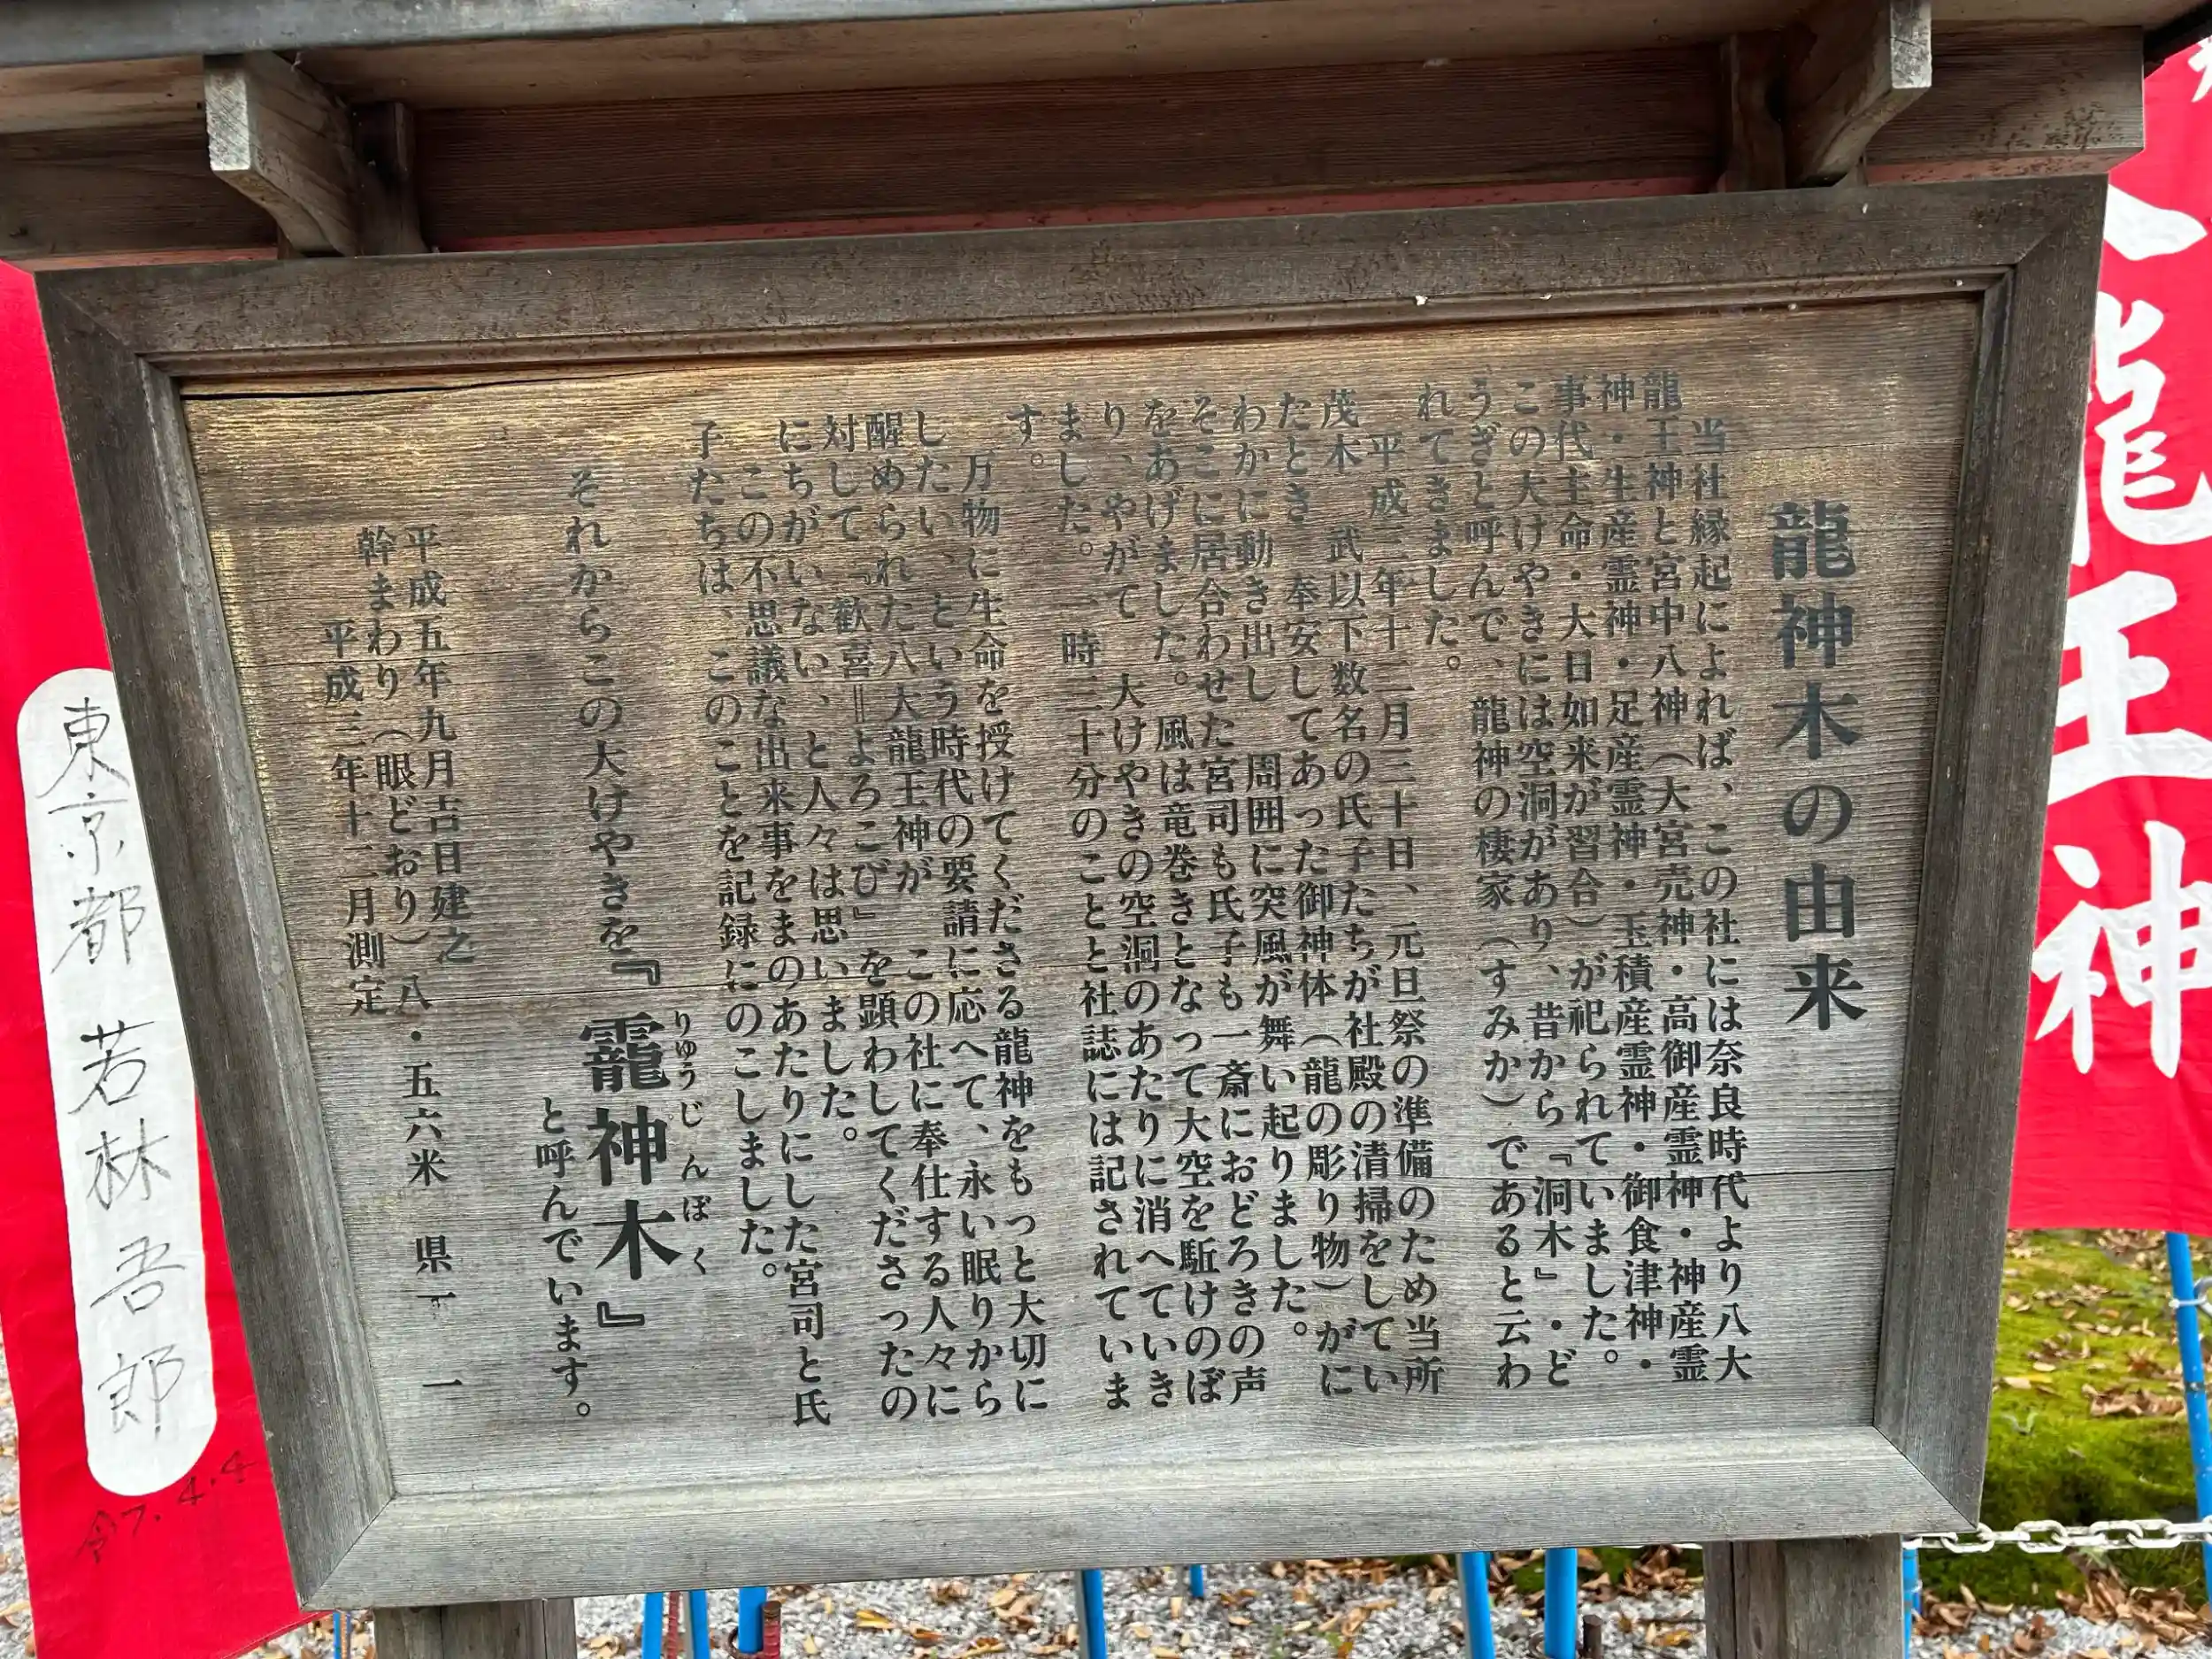 龍神木の由来
当社縁起によれば、この社には奈良時代より八大
龍王神と宮中八神（大宮売神・高御産霊神・神産霊
神・生産霊神・足産霊神・玉積産霊神・御食津神・
事代主命・大日如来が習合）が祀られていました。
この大けやきには空洞があり、昔から『洞木』・ど
うぎと呼んで、龍神の棲家（すみか）であると云わ
れてきました。
平成三年十二月三十日、元旦祭の準備のため当所
茂木 武以下数名の氏子たちが社殿の清掃をしてい
たとき 奉安してあった御神体（龍の彫り物）がに
わかに動き出し 周囲に突風が舞い起りました。
そこに居合わせた宮司も氏子も一斎におどろきの声
をあげました。風は竜巻きとなって大空を駈けのぼ
り、やがて 大けやきの空洞のあたりに消へていき
ました。一時二十分のことと社誌には記されていま
す。
万物に生命を授けてくださる龍神をもっと大切に
したい、という時代の要請に応へて、永い眠りから
醒められた八大龍王神が この社に奉仕する人々に
対して『歓喜＝よろこび』を顕わしてくださったの
にちがいない、と人々は思いました。
この不思議な出来事をまのあたりにした宮司と氏
子たちは、このことを記録にのこしました。
それからこの大けやきを『龗神木』
りゅうじんぼく
と呼んでいます。
平成五年九月吉日建之
幹まわり（眼どおり）八・五六米 県一 一
平成三年十二月測定
龍王神
東京都 若林吾郎
令7.4.4